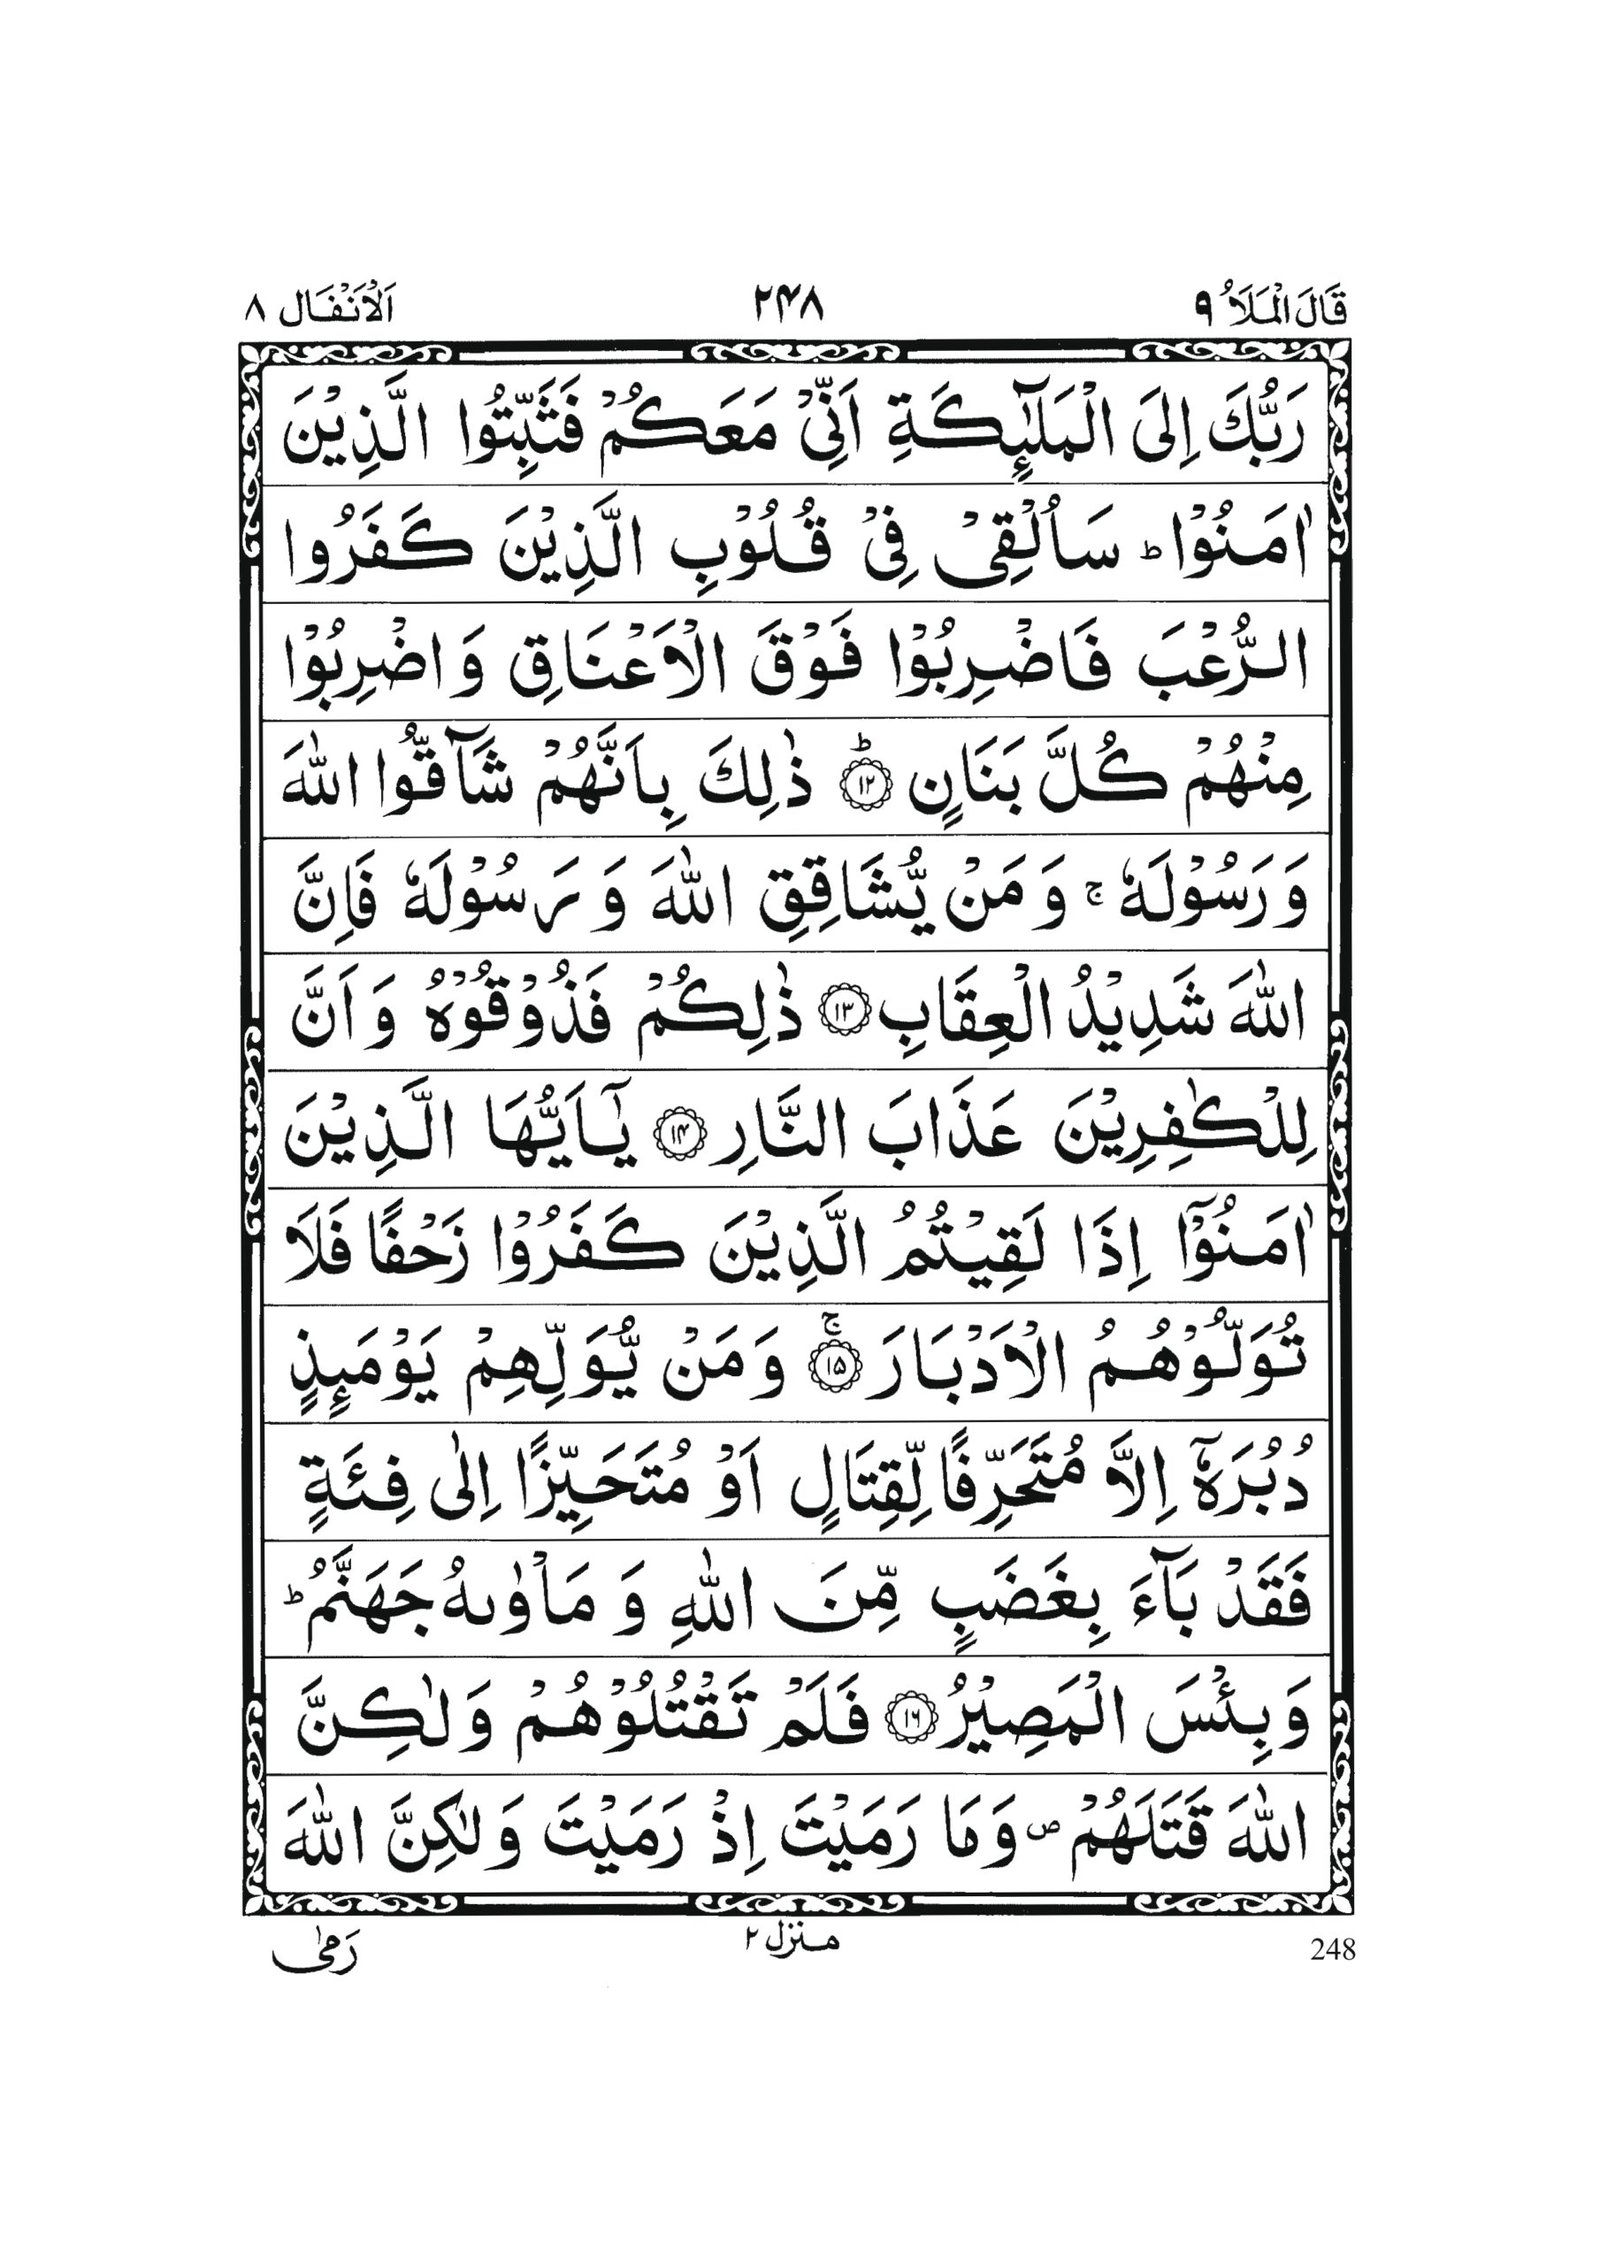 قَالَ الْمَلَاُ ٩ ٢٤٨ اَلْاَنْفَال ٨
رَبُّكَ اِلَى الْمَلٰٓئِكَةِ اَنِّيْ مَعَكُمْ فَثَبِّتُوا الَّذِيْنَ
اٰمَنُوْا ؕ سَاُلْقِيْ فِيْ قُلُوْبِ الَّذِيْنَ كَفَرُوا
الرُّعْبَ فَاضْرِبُوْا فَوْقَ الْاَعْنَاقِ وَاضْرِبُوْا
مِنْهُمْ كُلَّ بَنَانٍ ؕ ﴿١٢﴾ ذٰلِكَ بِاَنَّهُمْ شَآقُّوا اللّٰهَ
وَرَسُوْلَهٗ ۚ وَمَنْ يُّشَاقِقِ اللّٰهَ وَرَسُوْلَهٗ فَاِنَّ
اللّٰهَ شَدِيْدُ الْعِقَابِ ﴿١٣﴾ ذٰلِكُمْ فَذُوْقُوْهُ وَاَنَّ
لِلْكٰفِرِيْنَ عَذَابَ النَّارِ ﴿١٤﴾ يٰۤاَيُّهَا الَّذِيْنَ
اٰمَنُوْۤا اِذَا لَقِيْتُمُ الَّذِيْنَ كَفَرُوْا زَحْفًا فَلَا
تُوَلُّوْهُمُ الْاَدْبَارَ ۚ ﴿١٥﴾ وَمَنْ يُّوَلِّهِمْ يَوْمَئِذٍ
دُبُرَهٗۤ اِلَّا مُتَحَرِّفًا لِّقِتَالٍ اَوْ مُتَحَيِّزًا اِلٰى فِئَةٍ
فَقَدْ بَآءَ بِغَضَبٍ مِّنَ اللّٰهِ وَمَاْوٰىهُ جَهَنَّمُ ؕ
وَبِئْسَ الْمَصِيْرُ ﴿١٦﴾ فَلَمْ تَقْتُلُوْهُمْ وَلٰكِنَّ
اللّٰهَ قَتَلَهُمْ ۪ وَمَا رَمَيْتَ اِذْ رَمَيْتَ وَلٰكِنَّ اللّٰهَ
248 منزل ٢ رَمٰى